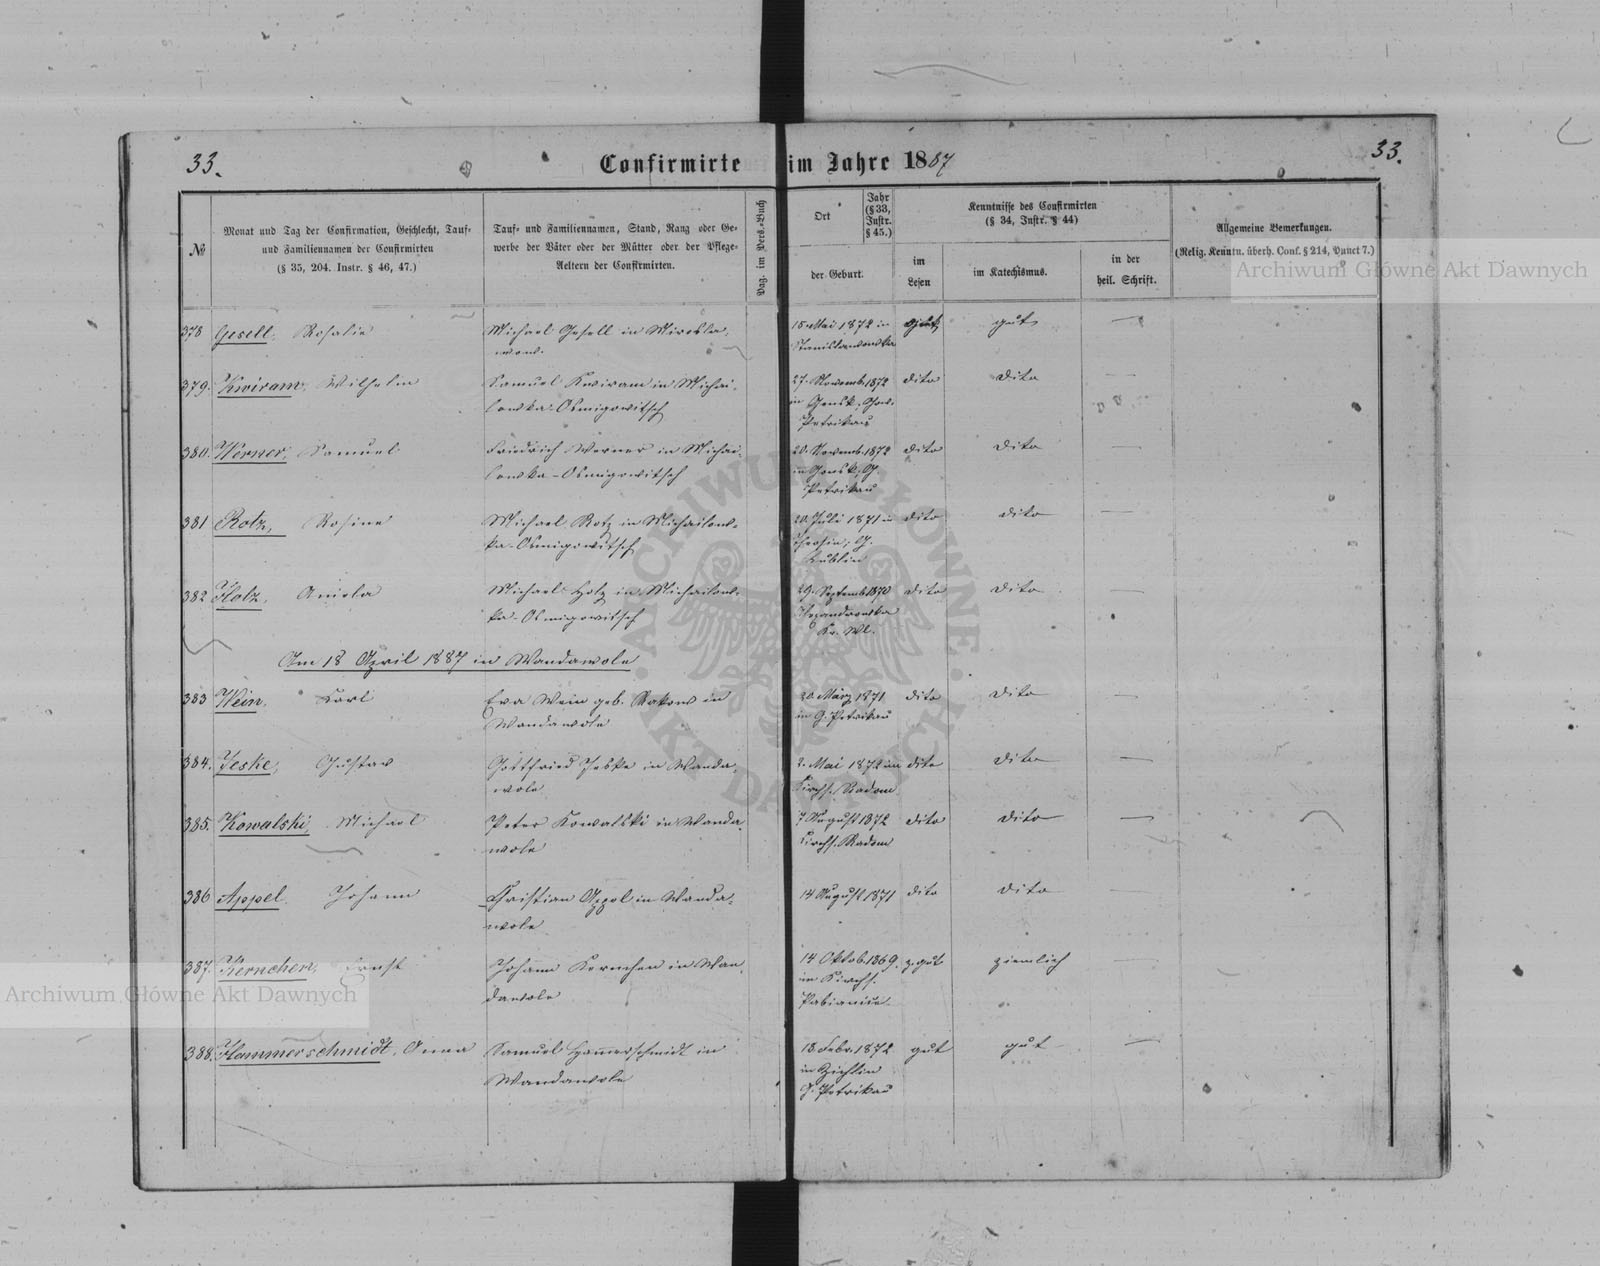 33.
Confirmirte im Jahre 1887
33.
№
Monat und Tag der Confirmation, Geschlecht, Tauf-
und Familiennamen der Confirmirten
(§ 35, 204. Instr. § 46, 47.)
Tauf- und Familiennamen, Stand, Rang oder Ge-
werbe der Väter oder der Mütter oder der Pflege-
Aeltern der Confirmirten.
Pag. im Pers.-Buch
Ort
Jahr
(§ 33,
Instr.
§ 45.)
der Geburt.
Kenntnisse des Confirmirten
(§ 34, Instr. § 44)
im
Lesen
im Katechismus.
in der
heil. Schrift.
Allgemeine Bemerkungen.
(Relig. Kenntn. überh. Conf. § 214, Punct 7.)
Archiwum Główne Akt Dawnych
378 Gesell, Rosalie
Michael Gesell in Mirosla-
wow.
15. Mai 1872 in
Stanislawowka
gut
gut
379. Kwiram, Wilhelm
Samuel Kwiram in Michai-
lowka-Osmigowitsch
27. Novemb. 1872
in Gensk, Gouv.
Petrikau
dito
dito
380. Werner, Samuel
Friedrich Werner in Michai-
lowka-Osmigowitsch
20. Novemb. 1872
in Gensk, G.
Petrikau
dito
dito
381 Rotz, Rosine
Michael Rotz in Michailow-
ka-Osmigowitsch
20. Juli 1871 in
G.
Lublin
dito
dito
382 Hotz, Aniela
Michael Hotz in Michailow-
ka-Osmigowitsch
29. Septemb. 1870
Kr. Wl.
dito
dito
Am 18 April 1887 in Wandawole
383 Wein, Carl
Eva Wein geb. Rakow in
Wandawole
20. März 1871
in G. Petrikau
dito
dito
384. Jeske, Gustav
Gottfried Jeske in Wanda-
wole
2. Mai 1872 im
Kirchs. Radom
dito
dito
385. Kowalski, Michael
Peter Kowalski in Wanda-
wole
7 August 1872
Kirchs. Radom
dito
dito
386 Appel, Johann
Christian Appel in Wanda-
wole
14 August 1871
dito
dito
387. Kernchen, Ernst
Johann Kernchen in Wan-
dawole
14 Oktob. 1869.
im Kirchs.
Pabianice
z. gut
ziemlich
388. Hammerschmidt, Anna
Samuel Hammerschmidt in
Wandawole
18. Febr. 1872
in Zychlin
G. Petrikau
gut
gut
Archiwum Główne Akt Dawnych
ARCHIWUM GŁÓWNE AKT DAWNYCH